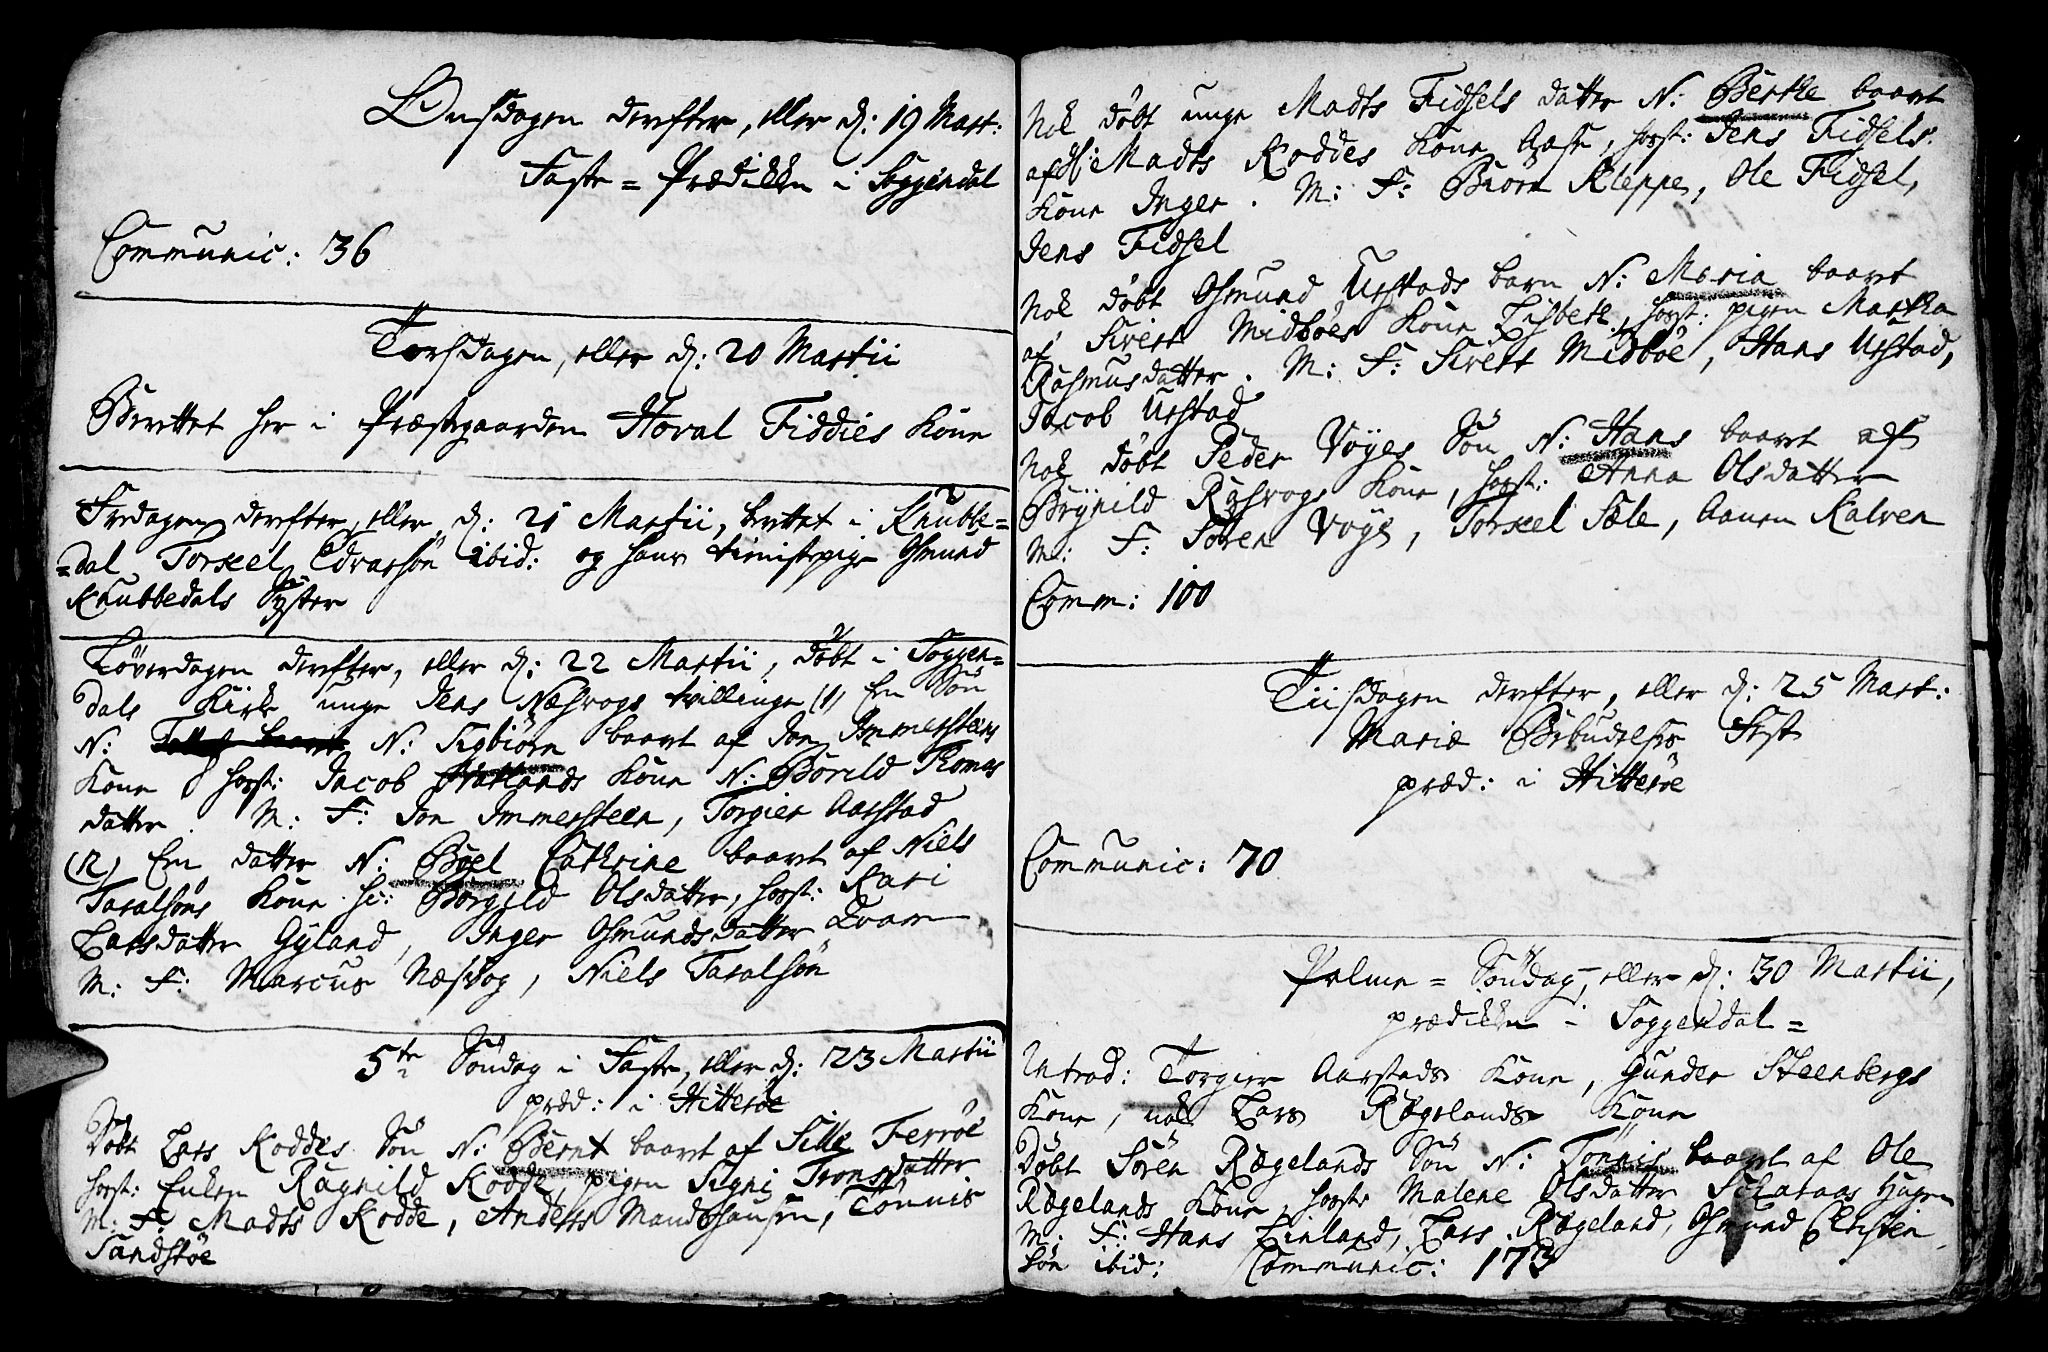 Onsdagen derefter, eller d: 19 Mart:
Faste = Prædikken i Soggendal
Communic: 36
Torsdagen, eller d: 20 Martii
Berettet her i Præstegaarden Hoval Fiddies Kone
Fredagen derefter, eller d: 21 Martii, berettet i Knubbe=
=dal Torkel Edvarsøn ibid: og hans tienistepige Osmund
Knubbedals Syster
Løverdagen derefter, eller d: 22 Martii, døbt i Soggen=
dals Kirke unge Jens Næsvogs tvillinge (1) En Søn
N: N: Sigbiørn baaret af Jon Immersteens
Kone, horst: Jacob Kone N: Borild Thomas
datter. M: F: Jon Immersteen, Torgier Aarstad
(2) En datter N: Boel Cathrine baaret af Niels
Taralsøns Kone hi: Borgild Olsdatter, horst: Kari
Larsdatter Gyland, Inger Osmundsdatter Evam
M: F: Marcus Næsvog, Niels Taralsøn
5te Søndag i Faste, eller d: 23 Martii
præd: i Hitterøe
Døbt Lars Roddes Søn N: Bernt baaret af Sille Ferrøe
horst: Enken Ragnild Rodde, pigen Signi Tronsdatter
M: F: Madts Rodde, Anders Mandshausen, Tønnis
Sandskøe
Nok døbt unge Madts Fidsels datter N: Berthe baaret
af Madts Roddes Kone Aase, horst: Jens Fidsels
Kone Inger. M: F: Biørn Kleppe, Ole Fidsel,
Jens Fidsel
Nok døbt Osmund Urstads barn N: Maria baaret
af Sivert Midbøes Kone Lisbeth, horst: pigen Martha
Rasmusdatter. M: F: Sivert Midbøe, Hans Urstad,
Jacob Urstad
Nok døbt Peder Vøyes Søn N: Hans baaret af
Brynild Røsvogs Kone, horst: Anna Olsdatter
M: F: Søren Vøye, Torkel Sæle, Aanen Kalven
Comm: 100
Tiisdagen derefter, eller d: 25 Mart:
Mariæ Bebudelses Fest
præd: i Hitterøe
Communic: 70
Palme = Søndag, eller d: 30 Martii,
prædikken i Soggendal =
Introd: Torgier Aarstads Kone, Gunder Steenbergs
Kone, nok Lars Rægelands Kone
Døbt Søren Rægelands Søn N: Tønnis baaret af Ole
Rægelands Kone, horst: Malene Olsdatter
M: F: Hans Linland, Lars Rægeland, Osmund Christen
søn ibid: Communic: 173